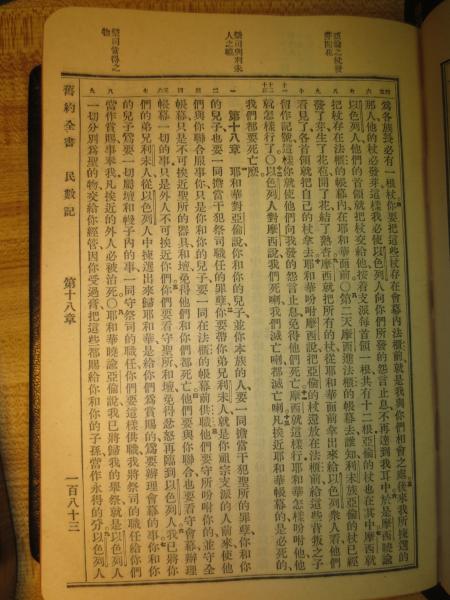 亞倫之杖發芽開花
祭司與利未人之職
祭司當得之物
爲各族長必有一根杖你要把這些杖存在會幕內法櫃前就是我與你們相會之處後來我所揀選的
那人他的杖必發芽這樣我必使以色列人向你們所發的怨言止息不再達到我耳中於是摩西曉諭
以色列人他們的首領就把杖交給他按着支派每首領一根共有十二根亞倫的杖也在其中摩西就
把杖存在法櫃的帳幕內在耶和華面前○第二天摩西進法櫃的帳幕去誰知利未族亞倫的杖已經
發了芽生了花苞開了花結了熟杏摩西就把所有的杖從耶和華面前拿出來給以色列衆人看他們
看見了各首領就把自己的杖拿去耶和華吩咐摩西說把亞倫的杖還放在法櫃前給這些背叛之子
留作記號這樣你就使他們向我發的怨言止息免得他們死亡摩西就這樣行耶和華怎樣吩咐他他
就怎樣行了○以色列人對摩西說我們死喇我們滅亡喇都滅亡喇凡挨近耶和華帳幕的是必死的
我們都要死亡麼
第十八章 耶和華對亞倫說你和你的兒子並你本族的人要一同擔當干犯聖所的罪孽你和你
的兒子也要一同擔當干犯祭司職任的罪孽你要帶你弟兄利未人就是你祖宗支派的人前來使他
們與你聯合服事你只是你和你的兒子要一同在法櫃的帳幕前供職他們要守所吩咐你的並守全
帳幕只是不可挨近聖所的器具和壇免得他們和你們都死亡他們要與你聯合也要看守會幕辦理
帳幕一切的事只是外人不可挨近你們你們要看守聖所和壇免得忿怒再臨到以色列人我已將你
們的弟兄利未人從以色列人中揀選出來歸耶和華是給你們爲賞賜的爲要辦理會幕的事你和你
的兒子要爲一切屬壇和幔子內的事一同守祭司的職任你們要這樣供職我將祭司的職任給你們
當作賞賜事奉我凡挨近的外人必被治死○耶和華曉諭亞倫說我已將歸我的舉祭就是以色列人
一切分別爲聖的物交給你經管因你受過膏把這些都賜給你和你的子孫當作永得的分以色列人
舊約全書 民數記 第十八章 一百八十三